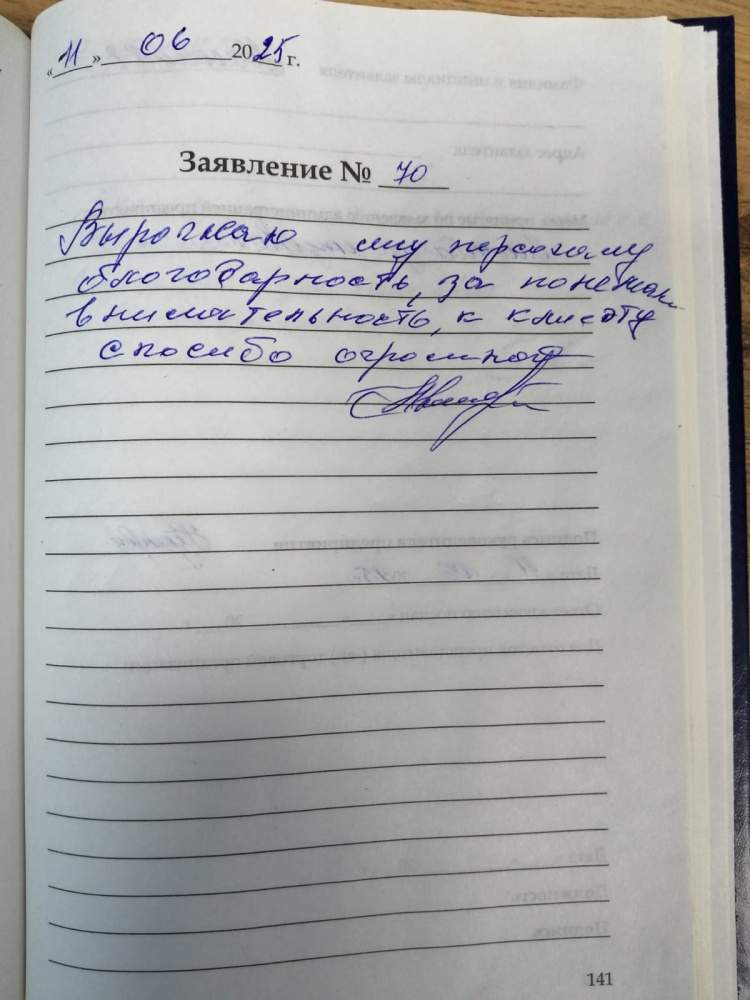 «11» 06 2025 г.
Заявление № 70
Выражаю персоналу
благодарность, за
внимательность, к клиенту
спасибо огромное
141